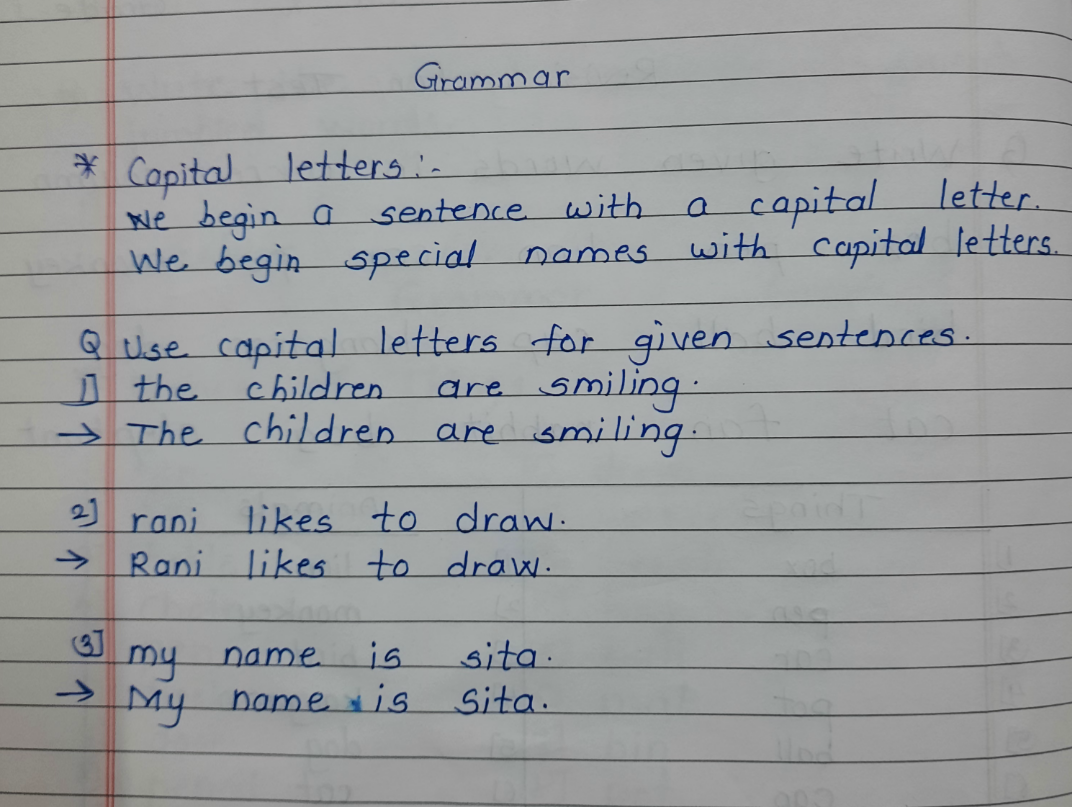 Grammar
* Capital letters :-
We begin a sentence with a capital letter.
We begin special names with capital letters.
Q Use capital letters for given sentences.
1] the children are smiling.
→ The children are smiling.
2] rani likes to draw.
→ Rani likes to draw.
(3] my name is sita.
→ My name is Sita.